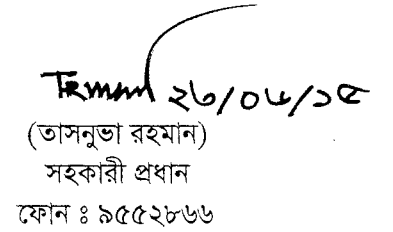 ২৩/০৬/১৫
(তাসনুভা রহমান)
সহকারী প্রধান
ফোন ঃ ৯৫৫২৮৬৬